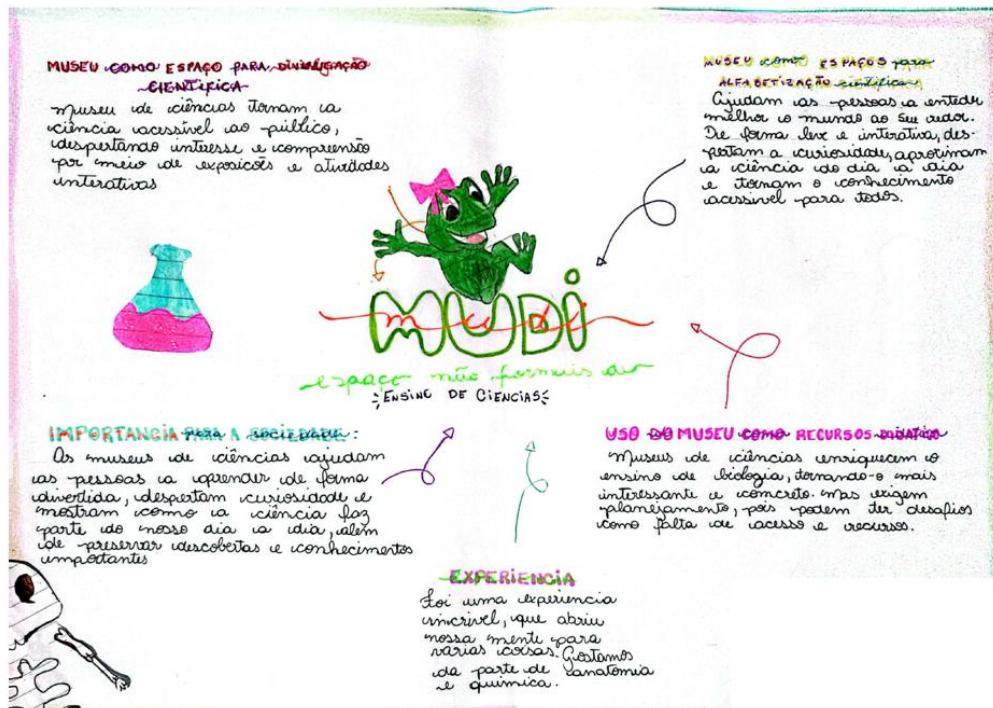 MUSEU COMO ESPAÇO PARA DIVULGAÇÃO
CIENTÍFICA
Museu de ciências tornam a
ciência acessível ao público,
despertando intresse e compreensão
por meio de exposicões e atividades
interativas
MUSEU como ESPAÇOS para
ALFABETIZAÇÃO científica
Ajudam as pessoas a enteder
melhor o mundo ao seu redor.
De forma leve e interativa, des-
pertam a curiosidade, aproximam
a ciência do dia a dia
e tornam o conhecimento
acessivel para todos.
MUDI
mudi
espaço não formais de
ENSINO DE CIENCIAS
IMPORTANCIA PARA A sociedade:
Os museus de ciências ajudam
as pessoas a aprender de forma
divertida, despertam curiosidade e
mostram como a ciência faz
parte do nosso dia a dia, além
de preservar descobertas e conhecimentos
importantes
USO DO MUSEU COMO RECURSOS DIDATICO
Museus de ciências enriquecem o
ensino de biologia, tornando-o mais
interessante e concreto. Mas exigem
planejamento, pois podem ter desafios
como falta de acesso e recursos.
EXPERIENCIA
Foi uma experiencia
incrivel, que abriu
nossa mente para
várias coisas. Gostamos
da parte de anatomia
e química.